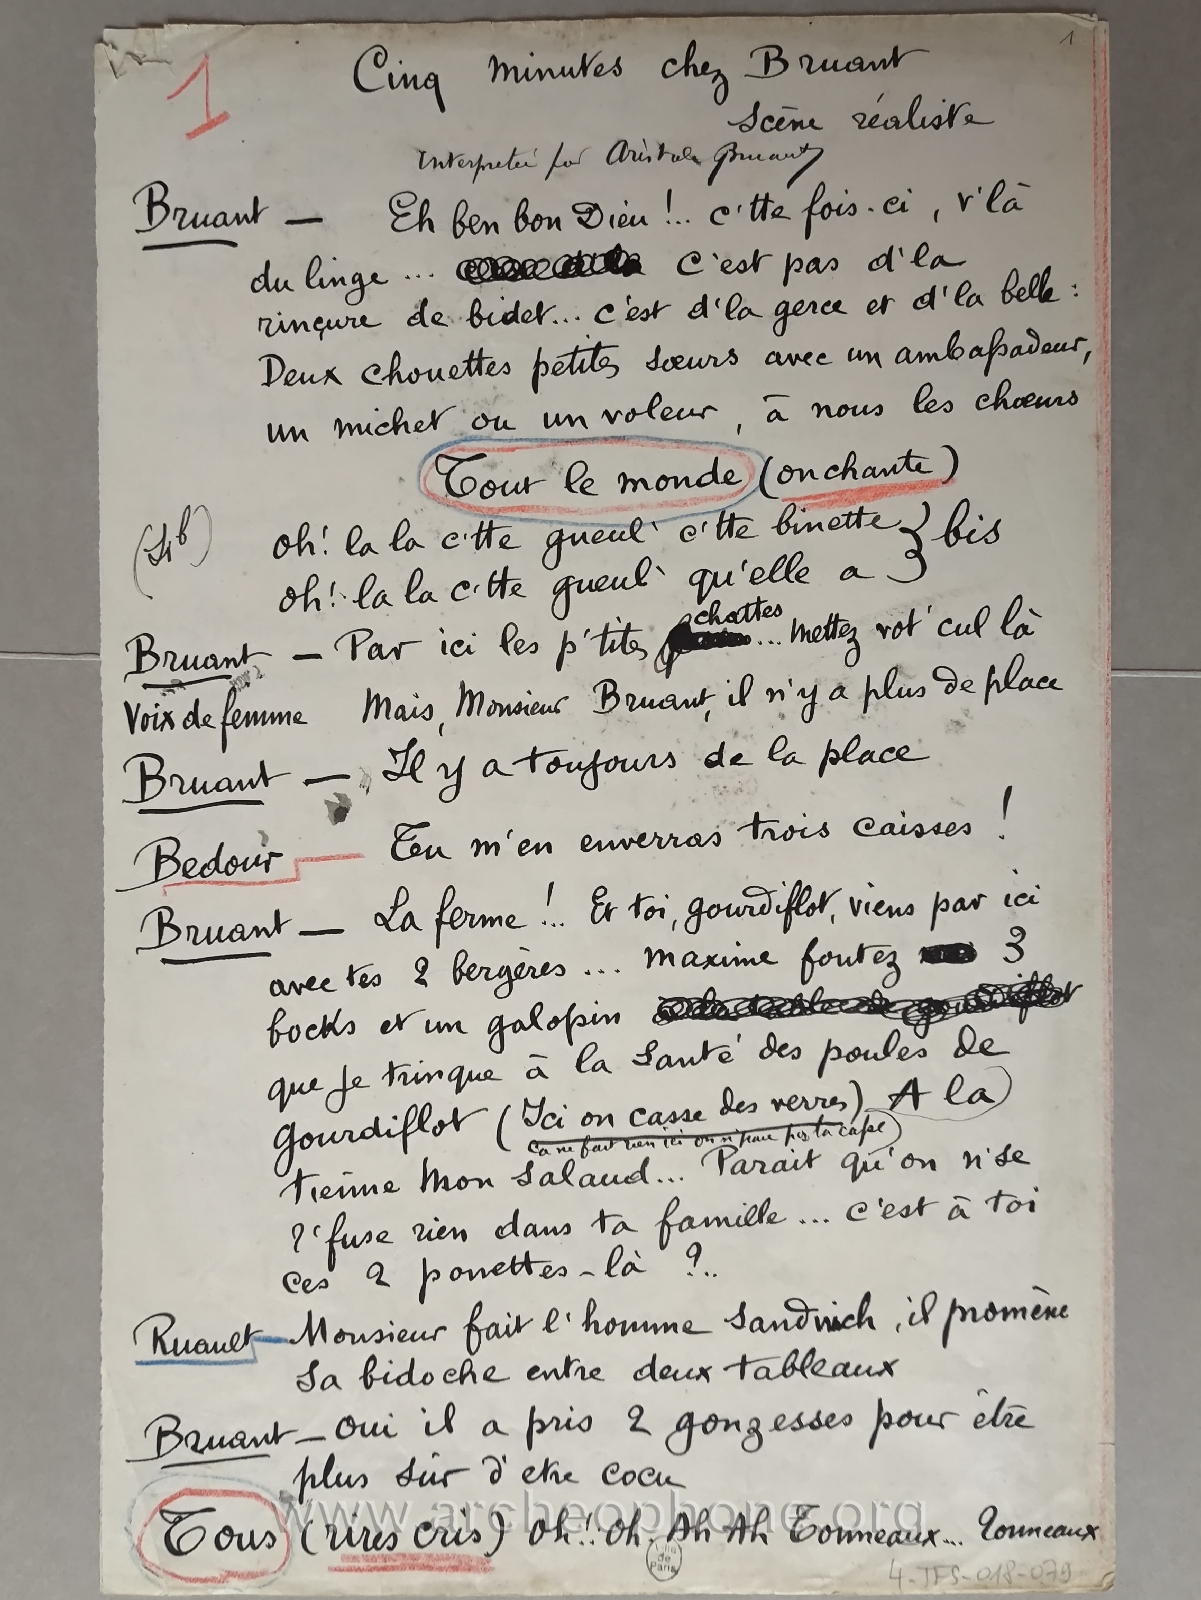 1
1
Cinq minutes chez Bruant
scène réaliste
Interpretée par Aristide Bruant
Bruant — Eh ben bon Dieu !.. c'tte fois-ci, v'là
du linge ... c'est pas d'la
rinçure de bidet... c'est d'la gerce et d'la belle :
Deux chouettes petites sœurs avec un ambassadeur,
un michet ou un voleur, à nous les chœurs
Tout le monde (on chante)
oh! la la c'tte gueul' c'tte binette } bis
oh! la la c'tte gueul' qu'elle a
Bruant — Par ici les p'tites chattes ... mettez vot' cul là
Voix de femme Mais, Monsieur Bruant, il n'y a plus de place
Bruant — Il y a toujours de la place
Bedour — Tu m'en enverras trois caisses !
Bruant — La ferme !.. Et toi, gourdiflot, viens par ici
avec tes 2 bergères ... maxime foutez 3
bocks et un galopin
que je trinque à la santé des poules de
gourdiflot (Ici on casse des verres) A la
ça ne fait rien ici on n'paie pas la casse)
tienne mon salaud... Parait qu'on n'se
r'fuse rien dans ta famille ... c'est à toi
ces 2 ponettes-là ?..
Ruault — Monsieur fait l'homme sandwich, il promène
sa bidoche entre deux tableaux
Bruant — oui il a pris 2 gonzesses pour être
plus sûr d'etre cocu
www.archeophone.org
Tous (rires cris) oh!. oh. Ah Ah Tonneaux... Tonneaux
Ville de Paris
4-TFS-018-079